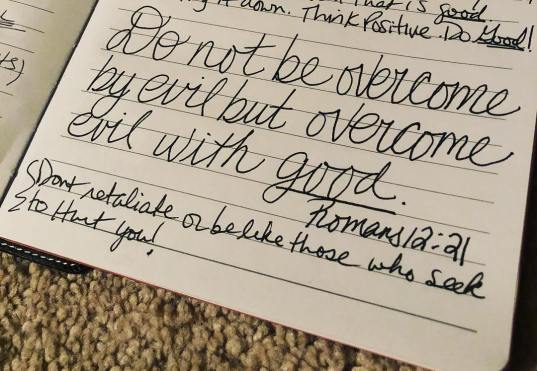 that is good.
it down. Think Positive. Do Good!
Do not be overcome
by evil but overcome
evil with good.
Romans 12:21
Dont retaliate or be like those who seek
to Hurt you!